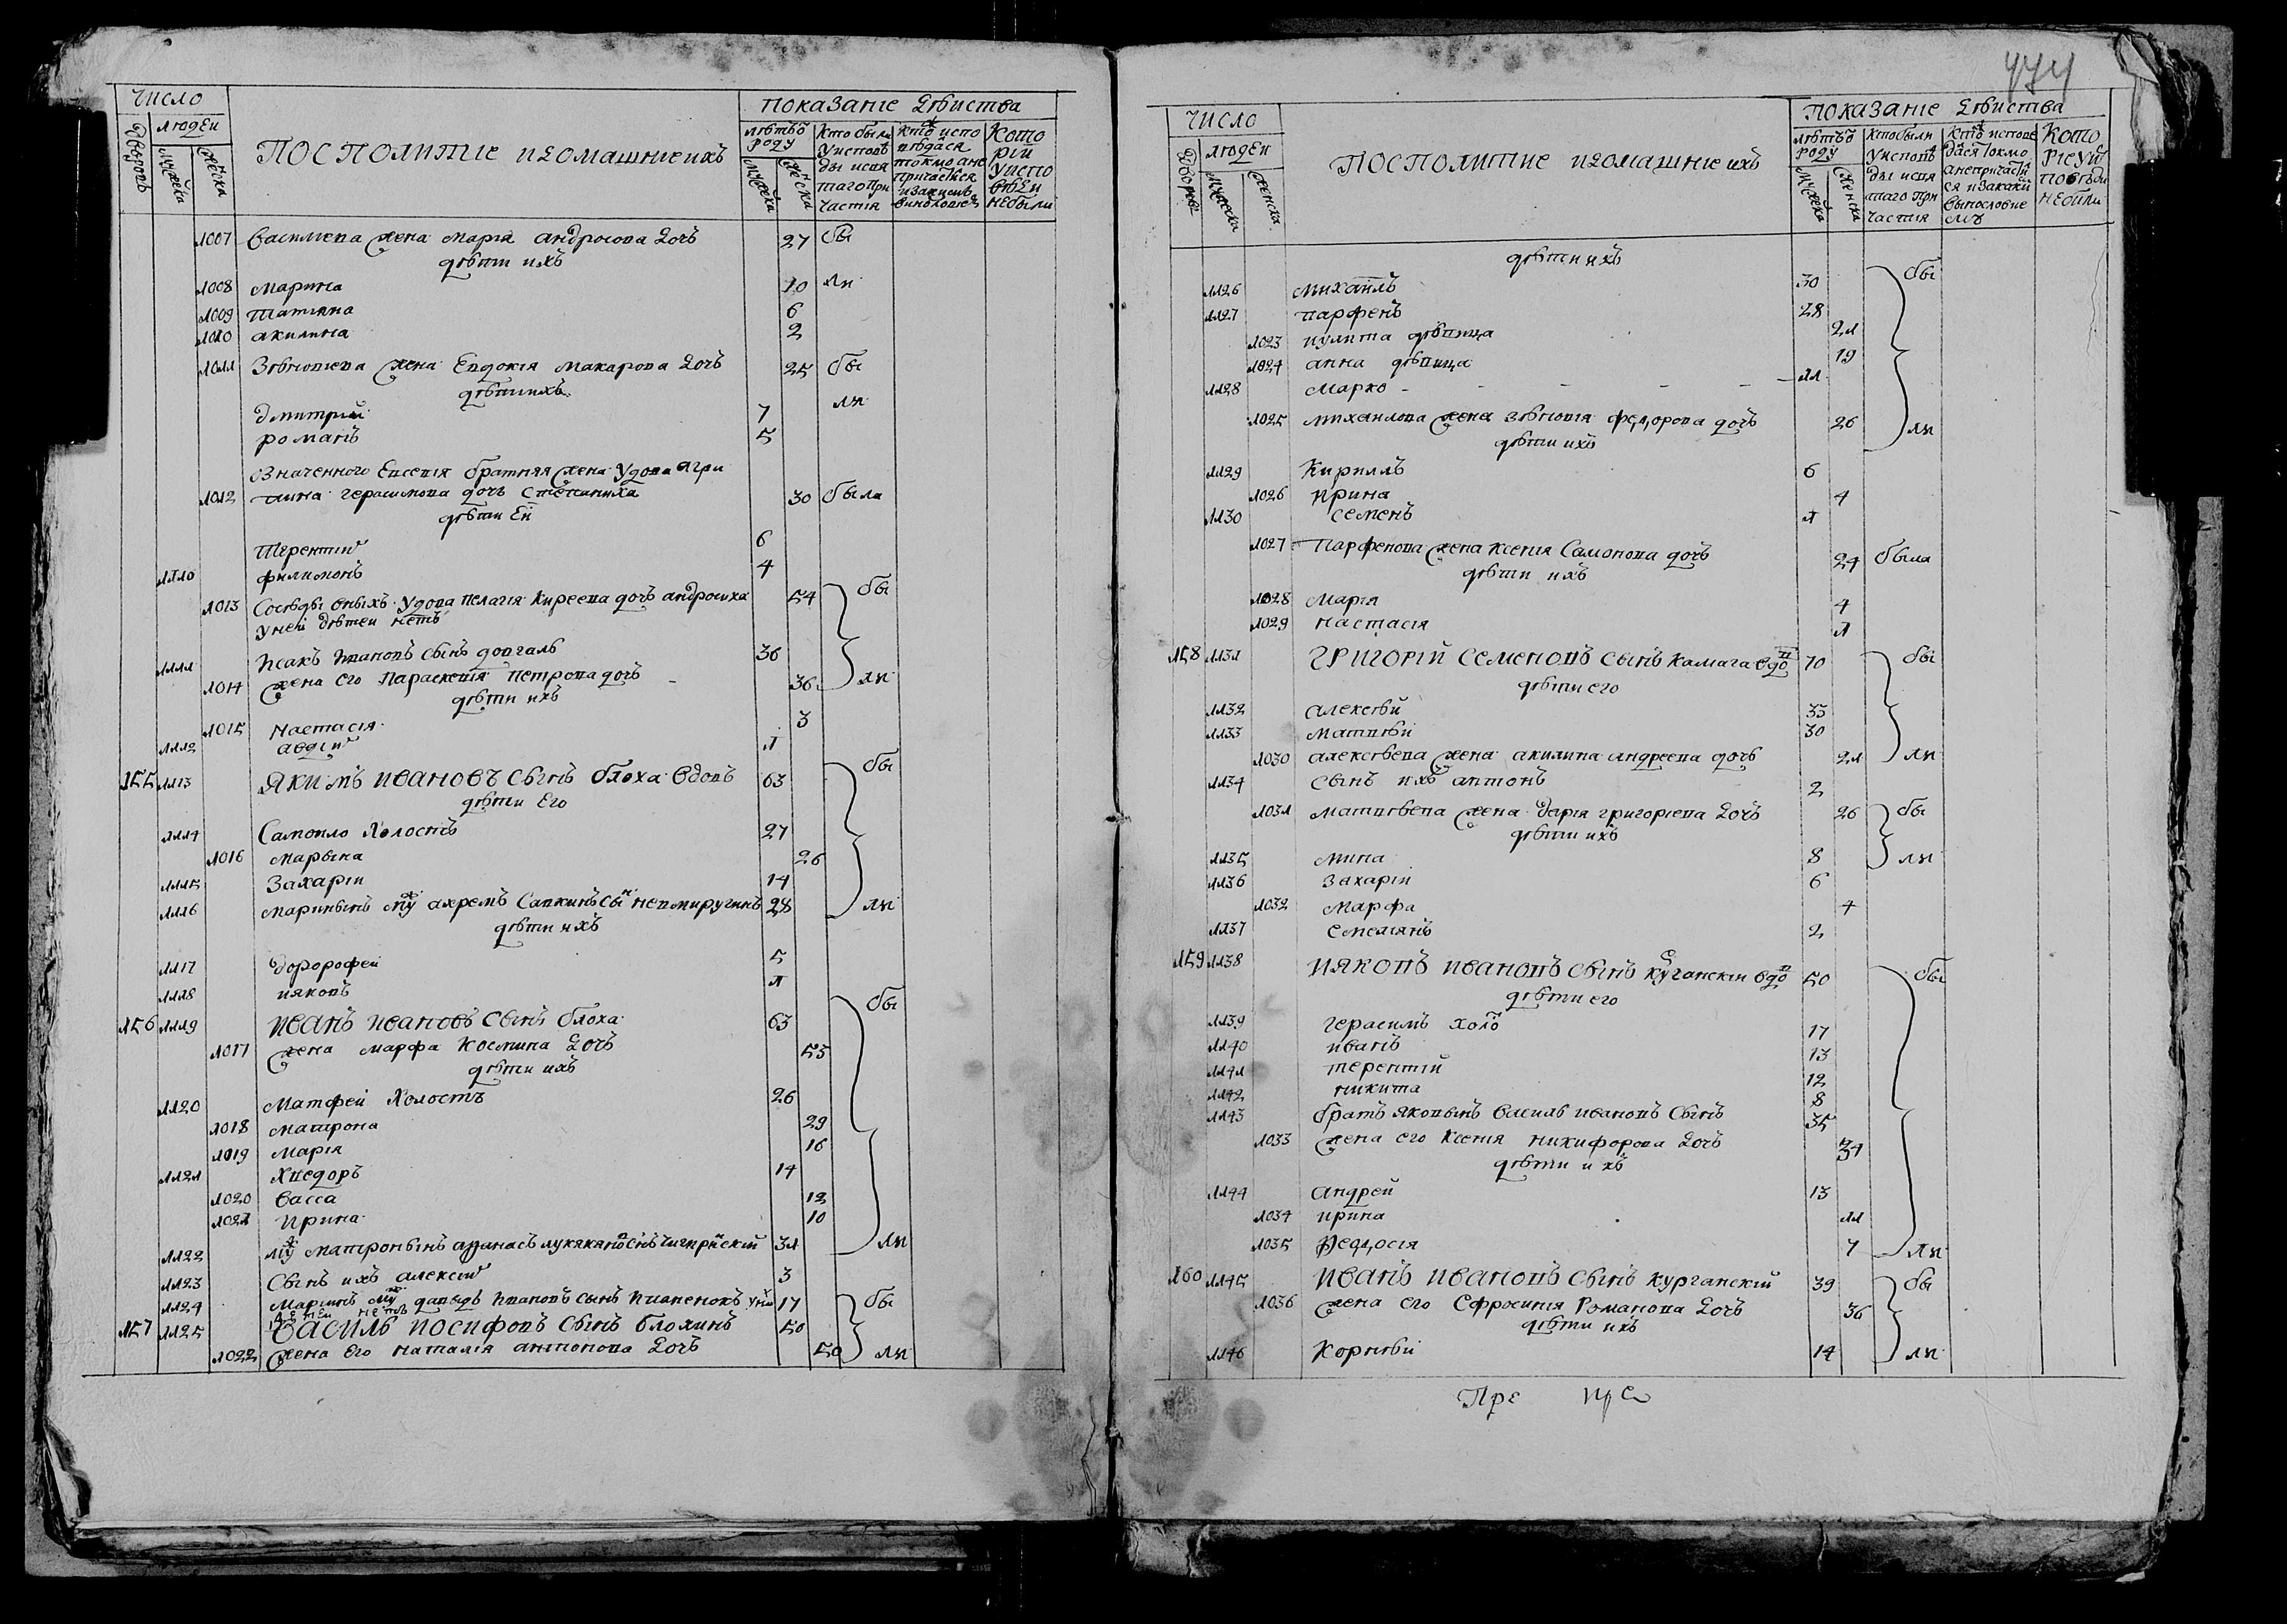 число
показание действа
людей
дворовъ
мужеска
женска
посполитие и домашние ихъ
летъ от роду
мужеска
женска
кто были у исповеди и святаго причастия
кто исповедася токмо а не причастися и за какимъ винословием
которий у исповеди не были
1007 василиева жена мария андросова дочь 27 бы
дети ихъ
1008 марина 10 ли
1009 татияна 6
1010 акилина 2
1011 Зѣновиева жена Евдокия макарова дочь 25 бы
дети ихъ ли
дмитрий 7
романъ 5
означенного Евсевия братняя жена удова Агри
1012 пина герасимова дочь 30 была
дети Ей
терентий 6
1110 филимонъ 4
1013 Соседы оныхъ удова пелагия Киреева дочь андросиха 54 бы
у ней детей нетъ
1111 Исакъ Ивановъ сынъ довгаль 36
1014 жена его Параскевия петрова дочь 36 ли
дети ихъ
1015 настасия 3
1112 авдий 1
155 1113 Якимъ ивановъ сынъ блоха вдовъ 63 бы
дети Его
1114 Самоило холостъ 27
1016 марына 26
1115 захарий 14
1116 маринынъ му ахремъ Савкинъ сы 28 ли
дети ихъ
1117 дорофей 5
1118 ияковъ 1
156 1119 иванъ ивановъ сынъ блоха 63 бы
1017 жена марфа космина дочь 55
дети ихъ
1120 матфей холостъ 26
1018 матрона 29
1019 мария 16
1121 Хведоръ 14
1020 васса 12
1021 ирина 10
1122 му матронынъ афанасъ чигиринский 31 ли
1123 сынъ ихъ алексий 3
1124 Мариинъ му давыдъ ивановъ сынъ 17 бы
детей нетъ
157 1125 василь иосифовъ сынъ блохинъ 50
1022 жена его наталия антонова дочь 50 ли
474
число
показание действа
людей
дворовъ
мужеска
женска
посполитие и домашние ихъ
летъ от роду
мужеска
женска
кто были у исповеди и святаго причастия
кто исповедася токмо а не причастися и за каким винословием
которие у исповеди не были
дети ихъ
1126 михаилъ 30 бы
1127 парфенъ 28
1023 иулита девица 21
1024 анна девица 19
1128 марко - - - - - 11
1025 михаилова жена зѣновия федорова дочь 26 ли
дети ихъ
1129 Кириллъ 6
1026 ирина 4
1130 семенъ 1
1027 парфенова жена ксения Самонова дочь 24 была
дети ихъ
1028 мария 4
1029 настасия 1
158 1131 григорий семеновъ сынъ камага вдо 70 бы
дети его
1132 алексѣй 33
1133 матвѣй 30
1030 алексѣева жена акилина андреева дочь 21 ли
1134 сынъ ихъ антонъ 2
1031 матвѣева жена дария григориева дочь 26 бы
дети ихъ
1135 мина 8 ли
1136 захарий 6
1032 марфа 4
1137 Емелиянъ 2
159 1138 ияковъ ивановъ сынъ курганский вдо 50 бы
дети его
1139 герасимъ холо 17
1140 иванъ 13
1141 терентий 12
1142 никита 8
1143 братъ яковынъ василь ивановъ сынъ 35
1033 жена его ксения никифорова дочь 34
дети ихъ
1144 андрей 13
1034 ирина 11
1035 Феодосия 7 ли
160 1145 иванъ ивановъ сынъ курганский 39 бы
1036 жена его Ефросиния Романова дочь 36
дети ихъ
1146 Корнѣй 14 ли